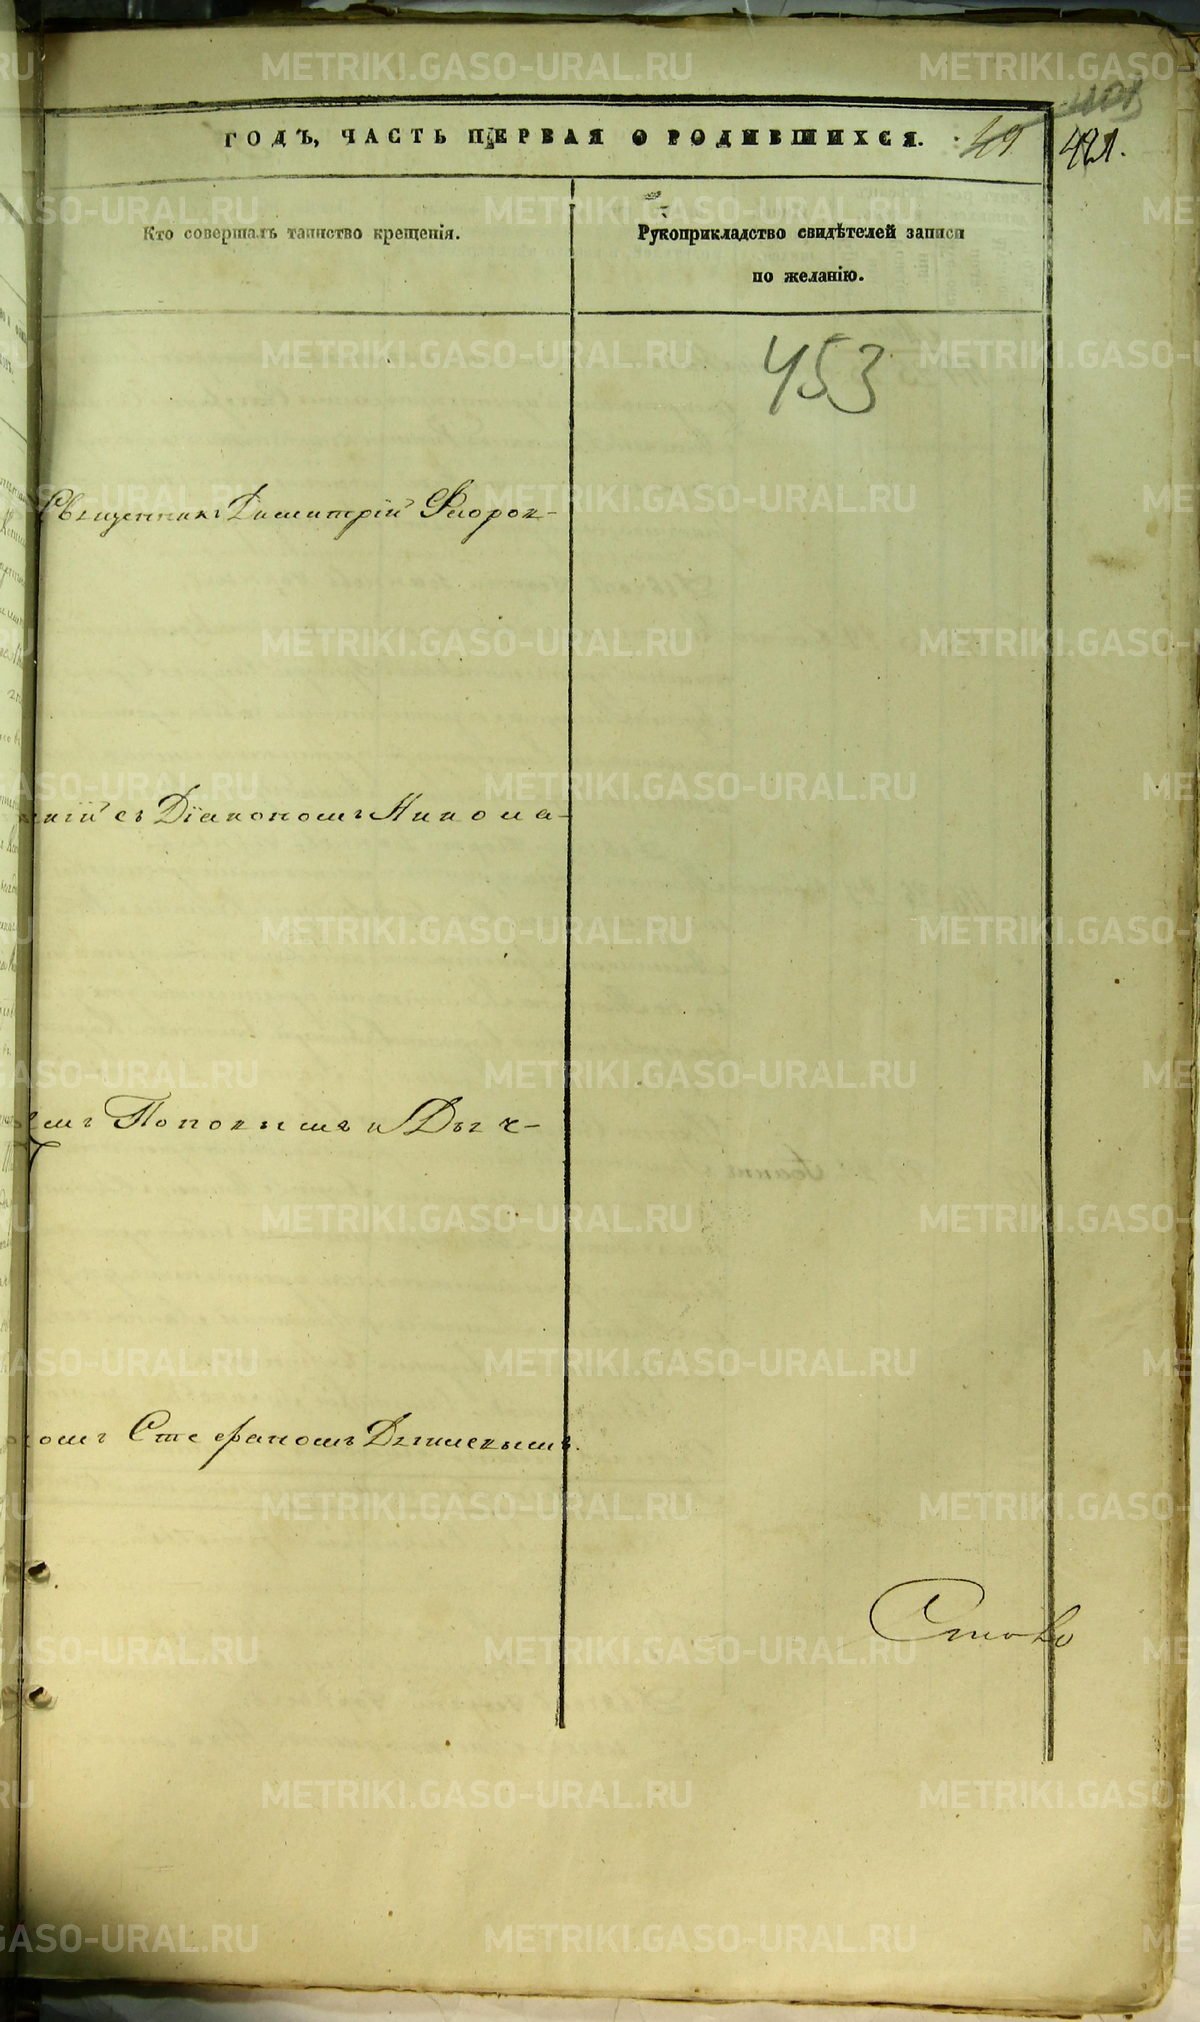 ГОДЪ, ЧАСТЬ ПЕРВАЯ О РОДИВШИХСЯ. 49
421.
Кто совершалъ таинство крещенія.
Рукоприкладство свидѣтелей записи
по желанію.
453
Священникъ Димитрій Флоров-
скій съ Діакономъ Никола-
емъ Поповымъ и Дьяч-
комъ Стефаномъ
METRIKI.GASO-URAL.RU